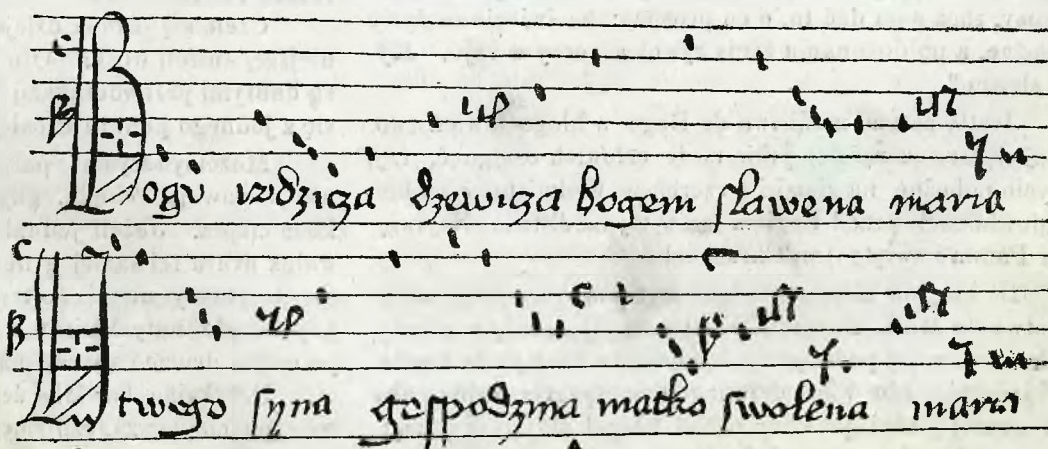 Bogu rodziça dzewiça bogem ſlawena maria
U twego ſyna goſpodzina matko ſwolena maria